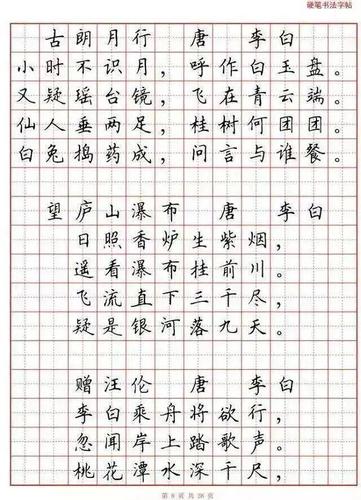 硬笔书法字帖
古朗月行 唐 李白
小时不识月，呼作白玉盘。
又疑瑶台镜，飞在青云端。
仙人垂两足，桂树何团团。
白兔捣药成，问言与谁餐。
望庐山瀑布 唐 李白
日照香炉生紫烟，
遥看瀑布挂前川。
飞流直下三千尽，
疑是银河落九天。
赠汪伦 唐 李白
李白乘舟将欲行，
忽闻岸上踏歌声。
桃花潭水深千尺，
第 8 页 共 页